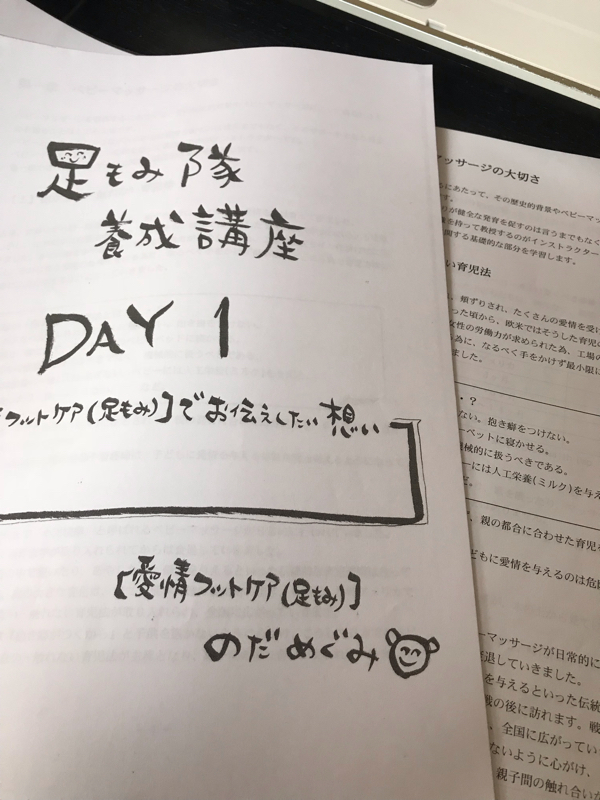 足もみ隊
養成講座
DAY 1
フットケア(足もみ)]でお伝えしたい想い
[愛情フットケア(足もみ)]
のだめぐみ
マッサージの大切さ
にあたって、その歴史的背景やベビーマッ
す。
が健全な発育を促すのは言うまでもなく
を持って教授するのがインストラクター
関する基礎的な部分を学習します。
い育児法
、頬ずりされ、たくさんの愛情を受け
った頃から、欧米ではそうした育児の
女性の労働力が求められた為、工場の
為に、なるべく手をかけず最小限に
ました。
・?
ない。抱き癖をつけない。
ーベットに寝かせる。
械的に扱うべきである。
ーには人工栄養(ミルク)を与え
、親の都合に合わせた育児
どもに愛情を与えるのは危
ーマッサージが日常的に
退していきました。
を与えるといった伝統
戦の後に訪れます。戦
、全国に広がってい
ないように心がけ、
親子間の触れ合い